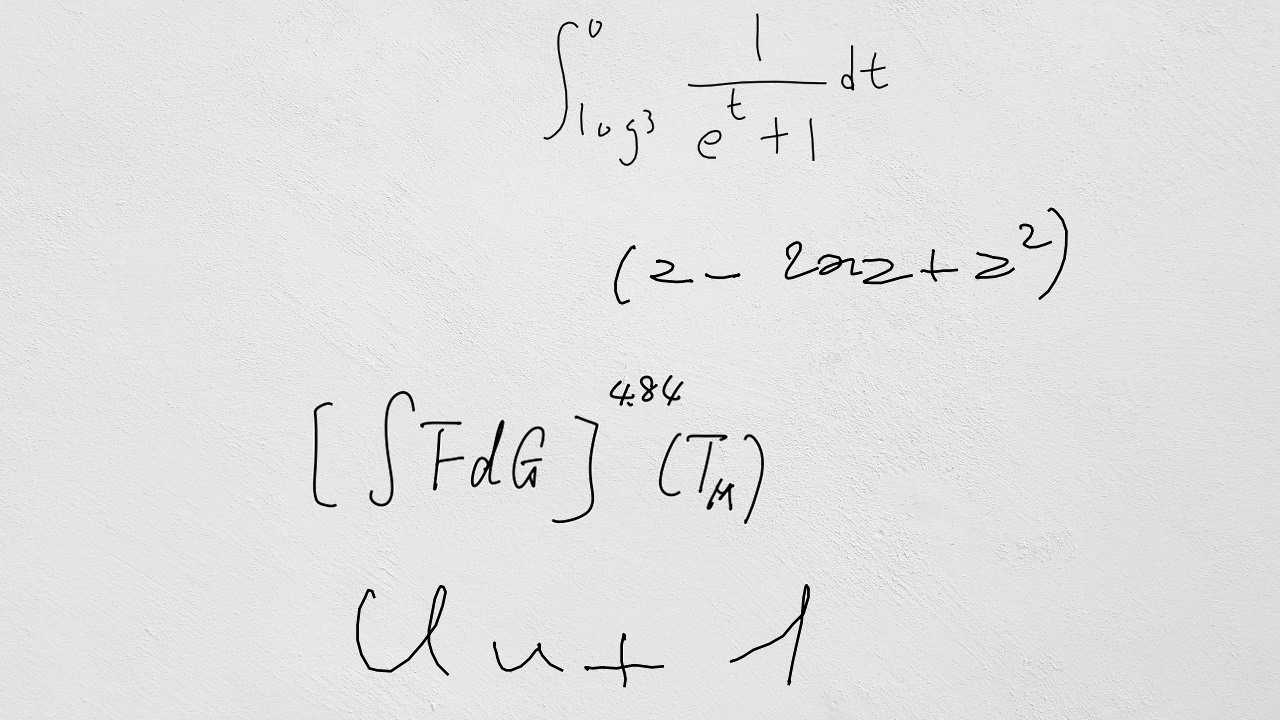 \int_{\log 3}^{0} \frac{1}{e^{t}+1} dt
(z - 2xz + z^{2})
[\int F d G]^{4.84} (T_{M})
U u + 1